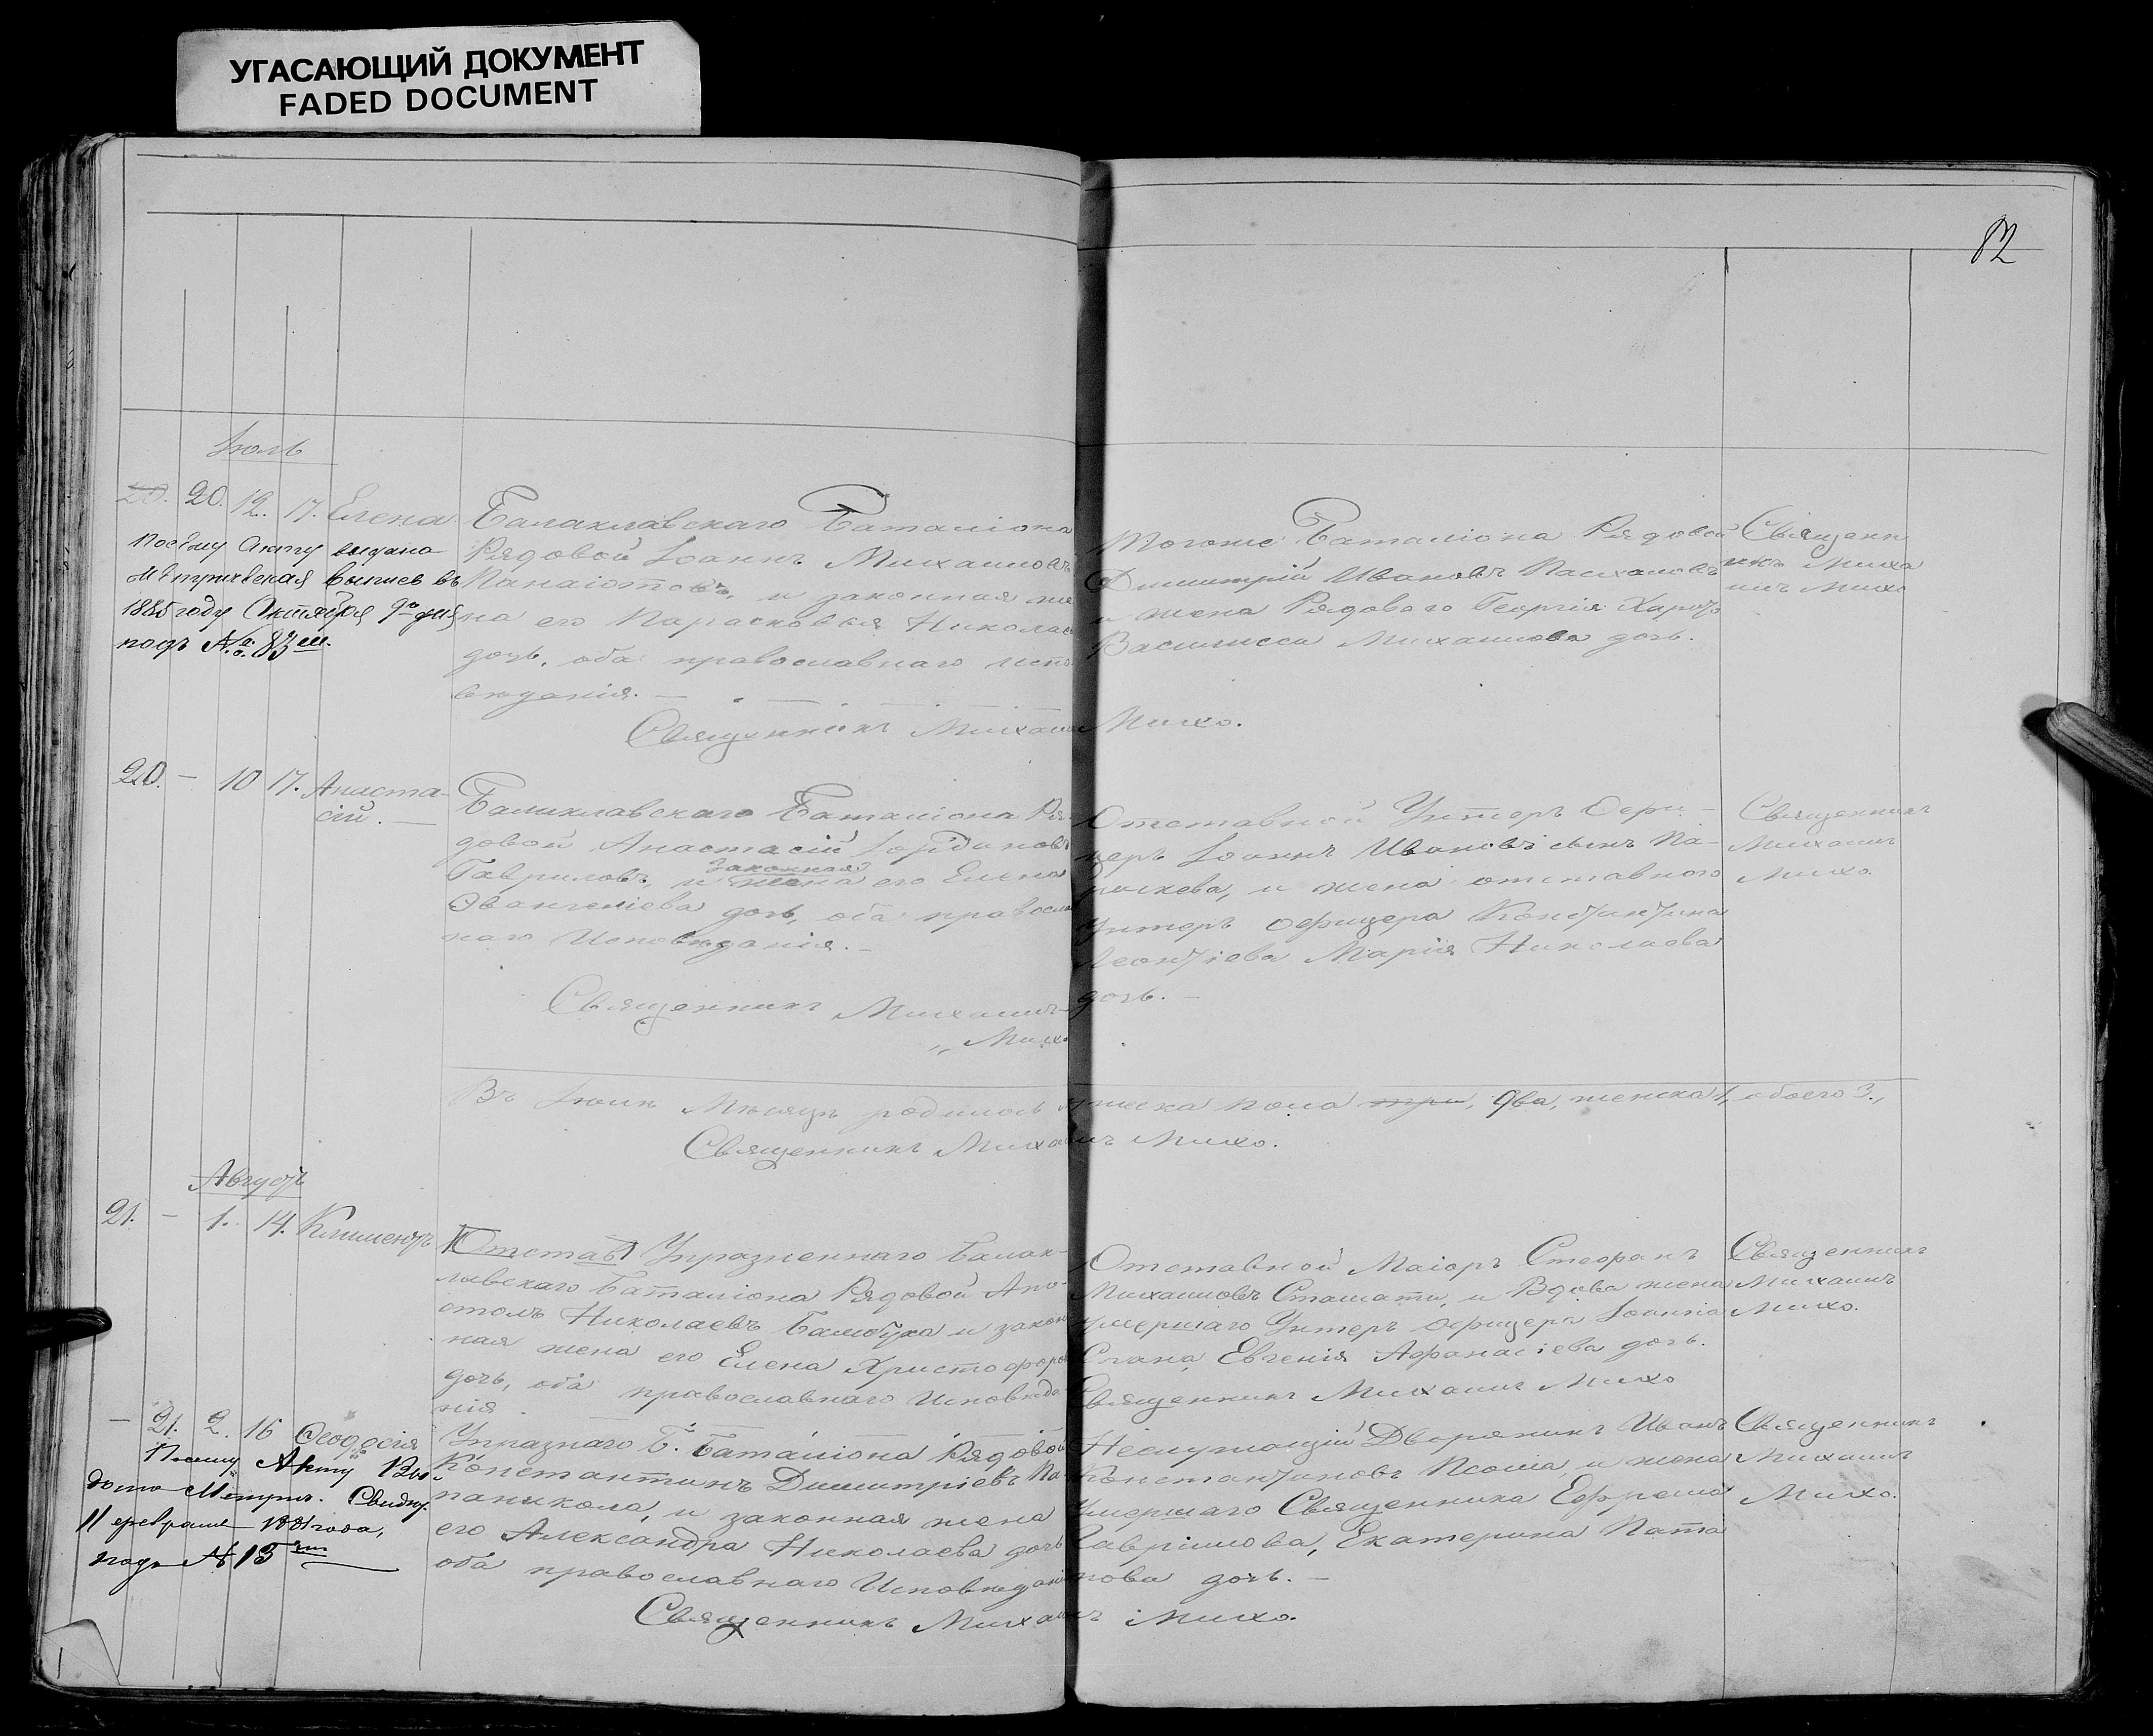 УГАСАЮЩИЙ ДОКУМЕНТ
FADED DOCUMENT
82
Іюль
20. 20. 12. 17. Елена
По сему Акту выдана
Метрическая выпись въ
1885 году Октября 9го дня
подъ № 83м.
Балаклавскаго Баталіона
Рядовой Іоаннъ Михаиловъ
Панаіотовъ, и законная же
на его Парасковья Николаев
дочь, оба православнаго испо
вѣданія.
Священникъ Михаилъ Михо.
Тогоже Баталіона Рядовой
Димитрій Ивановъ Пасхаловъ
и жена Рядоваго Георгія
Василисса Михаилова дочь.
Священн
икъ Миха
илъ Михо
20. — 10 17. Анаста-
сій. —
Балаклавскаго Баталіона Ря
довой Анастасій Іорданов
Гавриловъ, и законная жена его Елена
Эвангеліева дочь, оба правосла
наго Исповѣданія. —
Священникъ Михаилъ
„ Михо
Отставной Унтеръ Офи-
церъ Іоаннъ Ивановъ сынъ
и жена отставного
Унтеръ офицера Константина
Леонтіева Марія Николаева
дочь. —
Священникъ
Михаилъ
Михо.
Въ Іюлѣ Мѣсяцѣ родилось мужеска пола три, два, женска 1, обоего 3.,
Священникъ Михаилъ Михо.
Августъ
21. — 1. 14. Климентъ
Отстав Упраздненнаго Балак-
лавскаго Баталіона Рядовой Апо-
столъ Николаевъ и закон
ная жена его Елена Христофоров
дочь, оба православнаго Исповѣда
нія
Отставной Маіоръ Стефанъ
Михаиловъ Стамати, и Вдова жена
умершаго Унтеръ офицера Іоанна
Евгенія Афанасіева дочь.
Священникъ Михаилъ Михо
Священникъ
Михаилъ
Михо.
— 21. 2. 16 Феодосія
По сему Акту Вы-
дано Метрич. Свидѣт.
11 февраля 1881 года,
подъ № 13
Упразнаго Б. Баталіона Рядовой
Константинъ Димитріевъ Па-
паникола, и законная жена
его Александра Николаева дочь
оба православнаго Исповѣдан
Неслужащій Дворянинъ Иванъ
Константиновъ Псома, и жена
Умершаго Священника Ефрема
Гавриилова, Екатерина
дочь. —
Священникъ
Михаилъ
Михо.
Священникъ Михаилъ Михо.